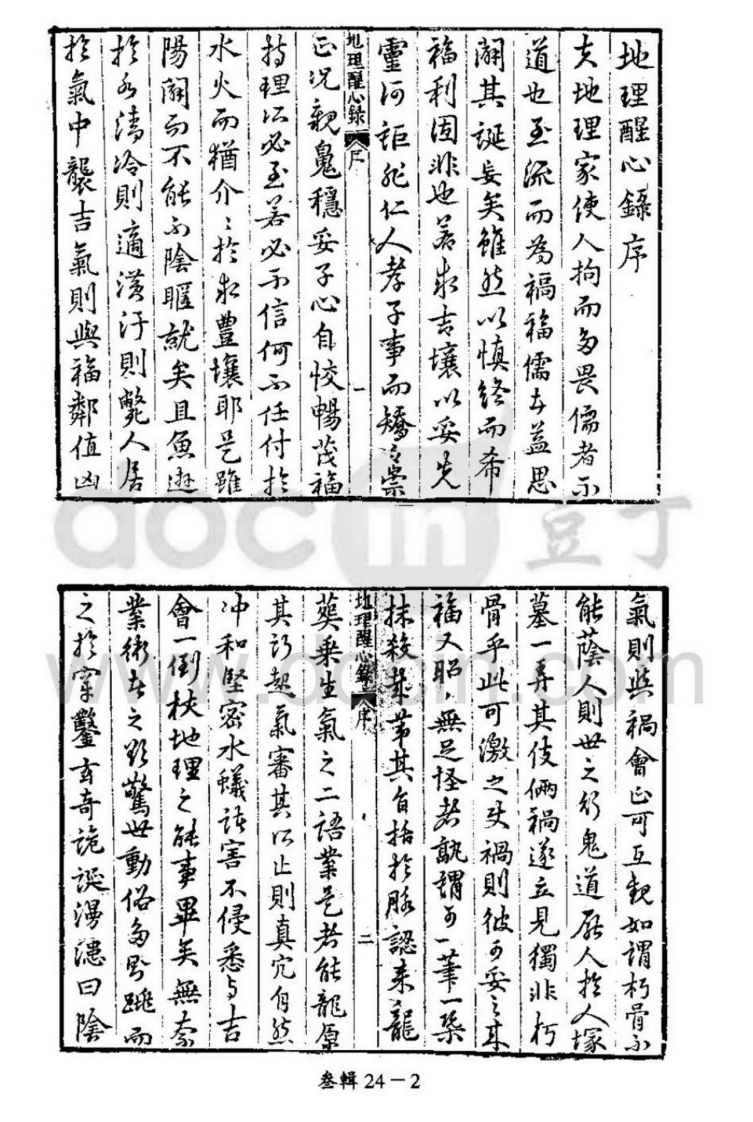 地理醒心錄序
夫地理家使人拘而多畏儒者不
道也至流而為禍福儒者益思
闢其誕妄矣雖然以慎終而希
福利固非也若求吉壤以妥先
靈何詎非仁人孝子事而矯之崇
地理醒心錄 序 一
正况親魄穩妥子心自恔暢茂福
持理以必至若必不信何不任付於
水火而猶介介於求豐壤耶是雖
陽闢而不能不陰暱就矣且魚遊
於水清冷則適潢汙則斃人居
於氣中襲吉氣則與福鄰值凶
氣則與禍會正可互觀如謂朽骨不
能蔭人則世之行鬼道厭人於人塚
墓一弄其伎倆禍遂立見獨非朽
骨乎此可激之使禍則彼可妥之求
福又昭無足怪者孰謂可一筆一槩
抹殺哉第其旨括於脉認來龍
地理醒心錄 序 二
葬乘生氣之二語業是者能龍原
其所起氣審其所止則真穴自然
冲和堅密水蟻諸害不侵悉与吉
會一倒杖地理之能事畢矣無奈
業術者之欲驚世動俗多旁跳而
之於穿鑿玄奇詭誕漫漶曰陰
叁輯 24－2
docin 豆丁
www.docin.com